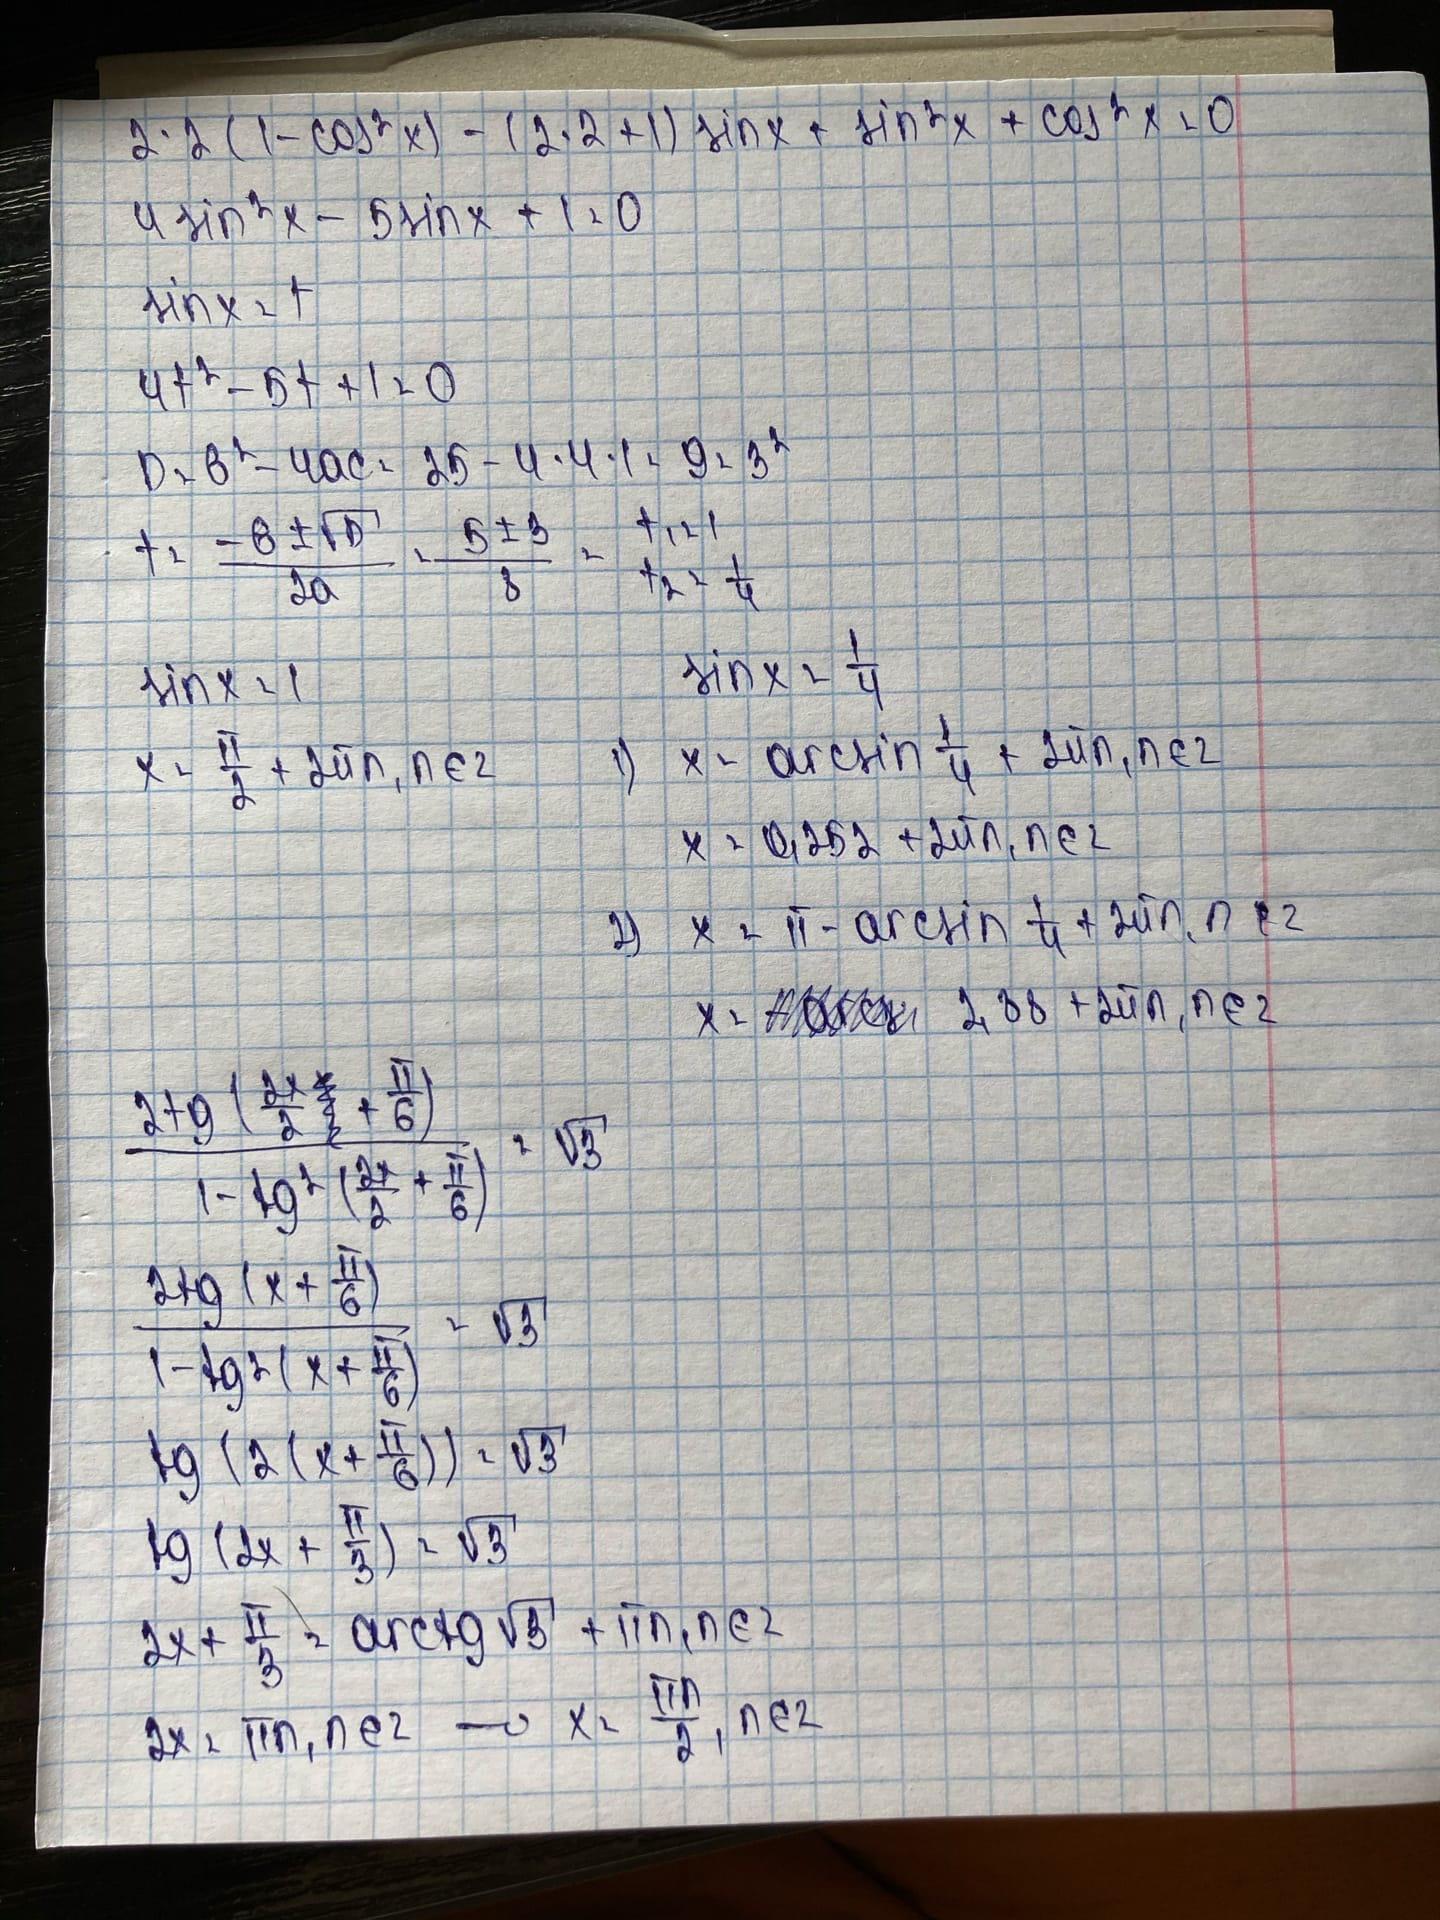 2·2(1-cos²x) - (2·2+1) sinx + sin²x + cos²x = 0
4sin²x - 5sinx + 1 = 0
sinx = t
4t² - 5t + 1 = 0
D = в² - 4ac = 25 - 4·4·1 = 9 = 3²
t = (-в ± √D)/2a = (5 ± 3)/8 = t₁ = 1 t₂ = 1/4
sinx = 1 sinx = 1/4
x = π/2 + 2πn, n∈z 1) x = arcsin 1/4 + 2πn, n∈z
x = 0,252 + 2πn, n∈z
2) x = π - arcsin 1/4 + 2πn, n∈z
x = 2,88 + 2πn, n∈z
2tg(2x/2 + π/6) / (1 - tg²(2x/2 + π/6)) = √3
2tg(x + π/6) / (1 - tg²(x + π/6)) = √3
tg(2(x + π/6)) = √3
tg(2x + π/3) = √3
2x + π/3 = arctg√3 + πn, n∈z
2x = πn, n∈z → x = πn/2, n∈z